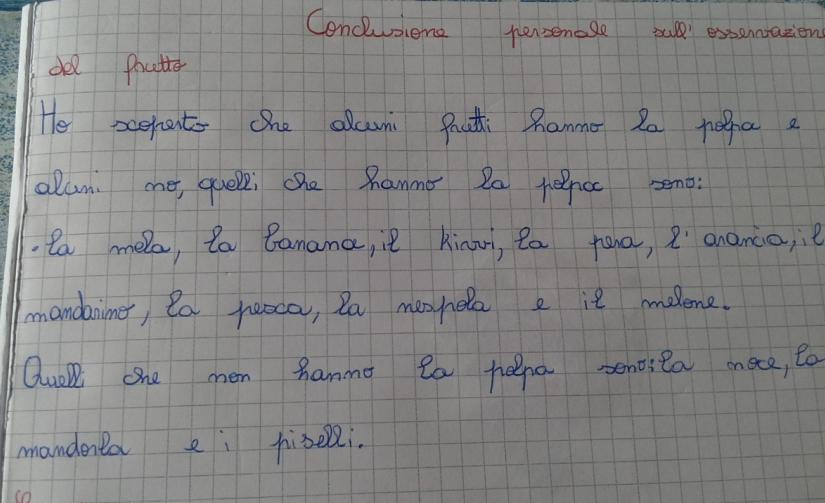 Conclusione personale sull'osservazione
del frutto
Ho scoperto che alcuni frutti hanno la polpa e
alcuni no, quelli che hanno la polpa sono:
•la mela, la banana, il kiwi, la pera, l'arancia, il
mandarino, la pesca, la nespola e il melone.
Quelli che non hanno la polpa sono: la noce, la
mandorla e i piselli.